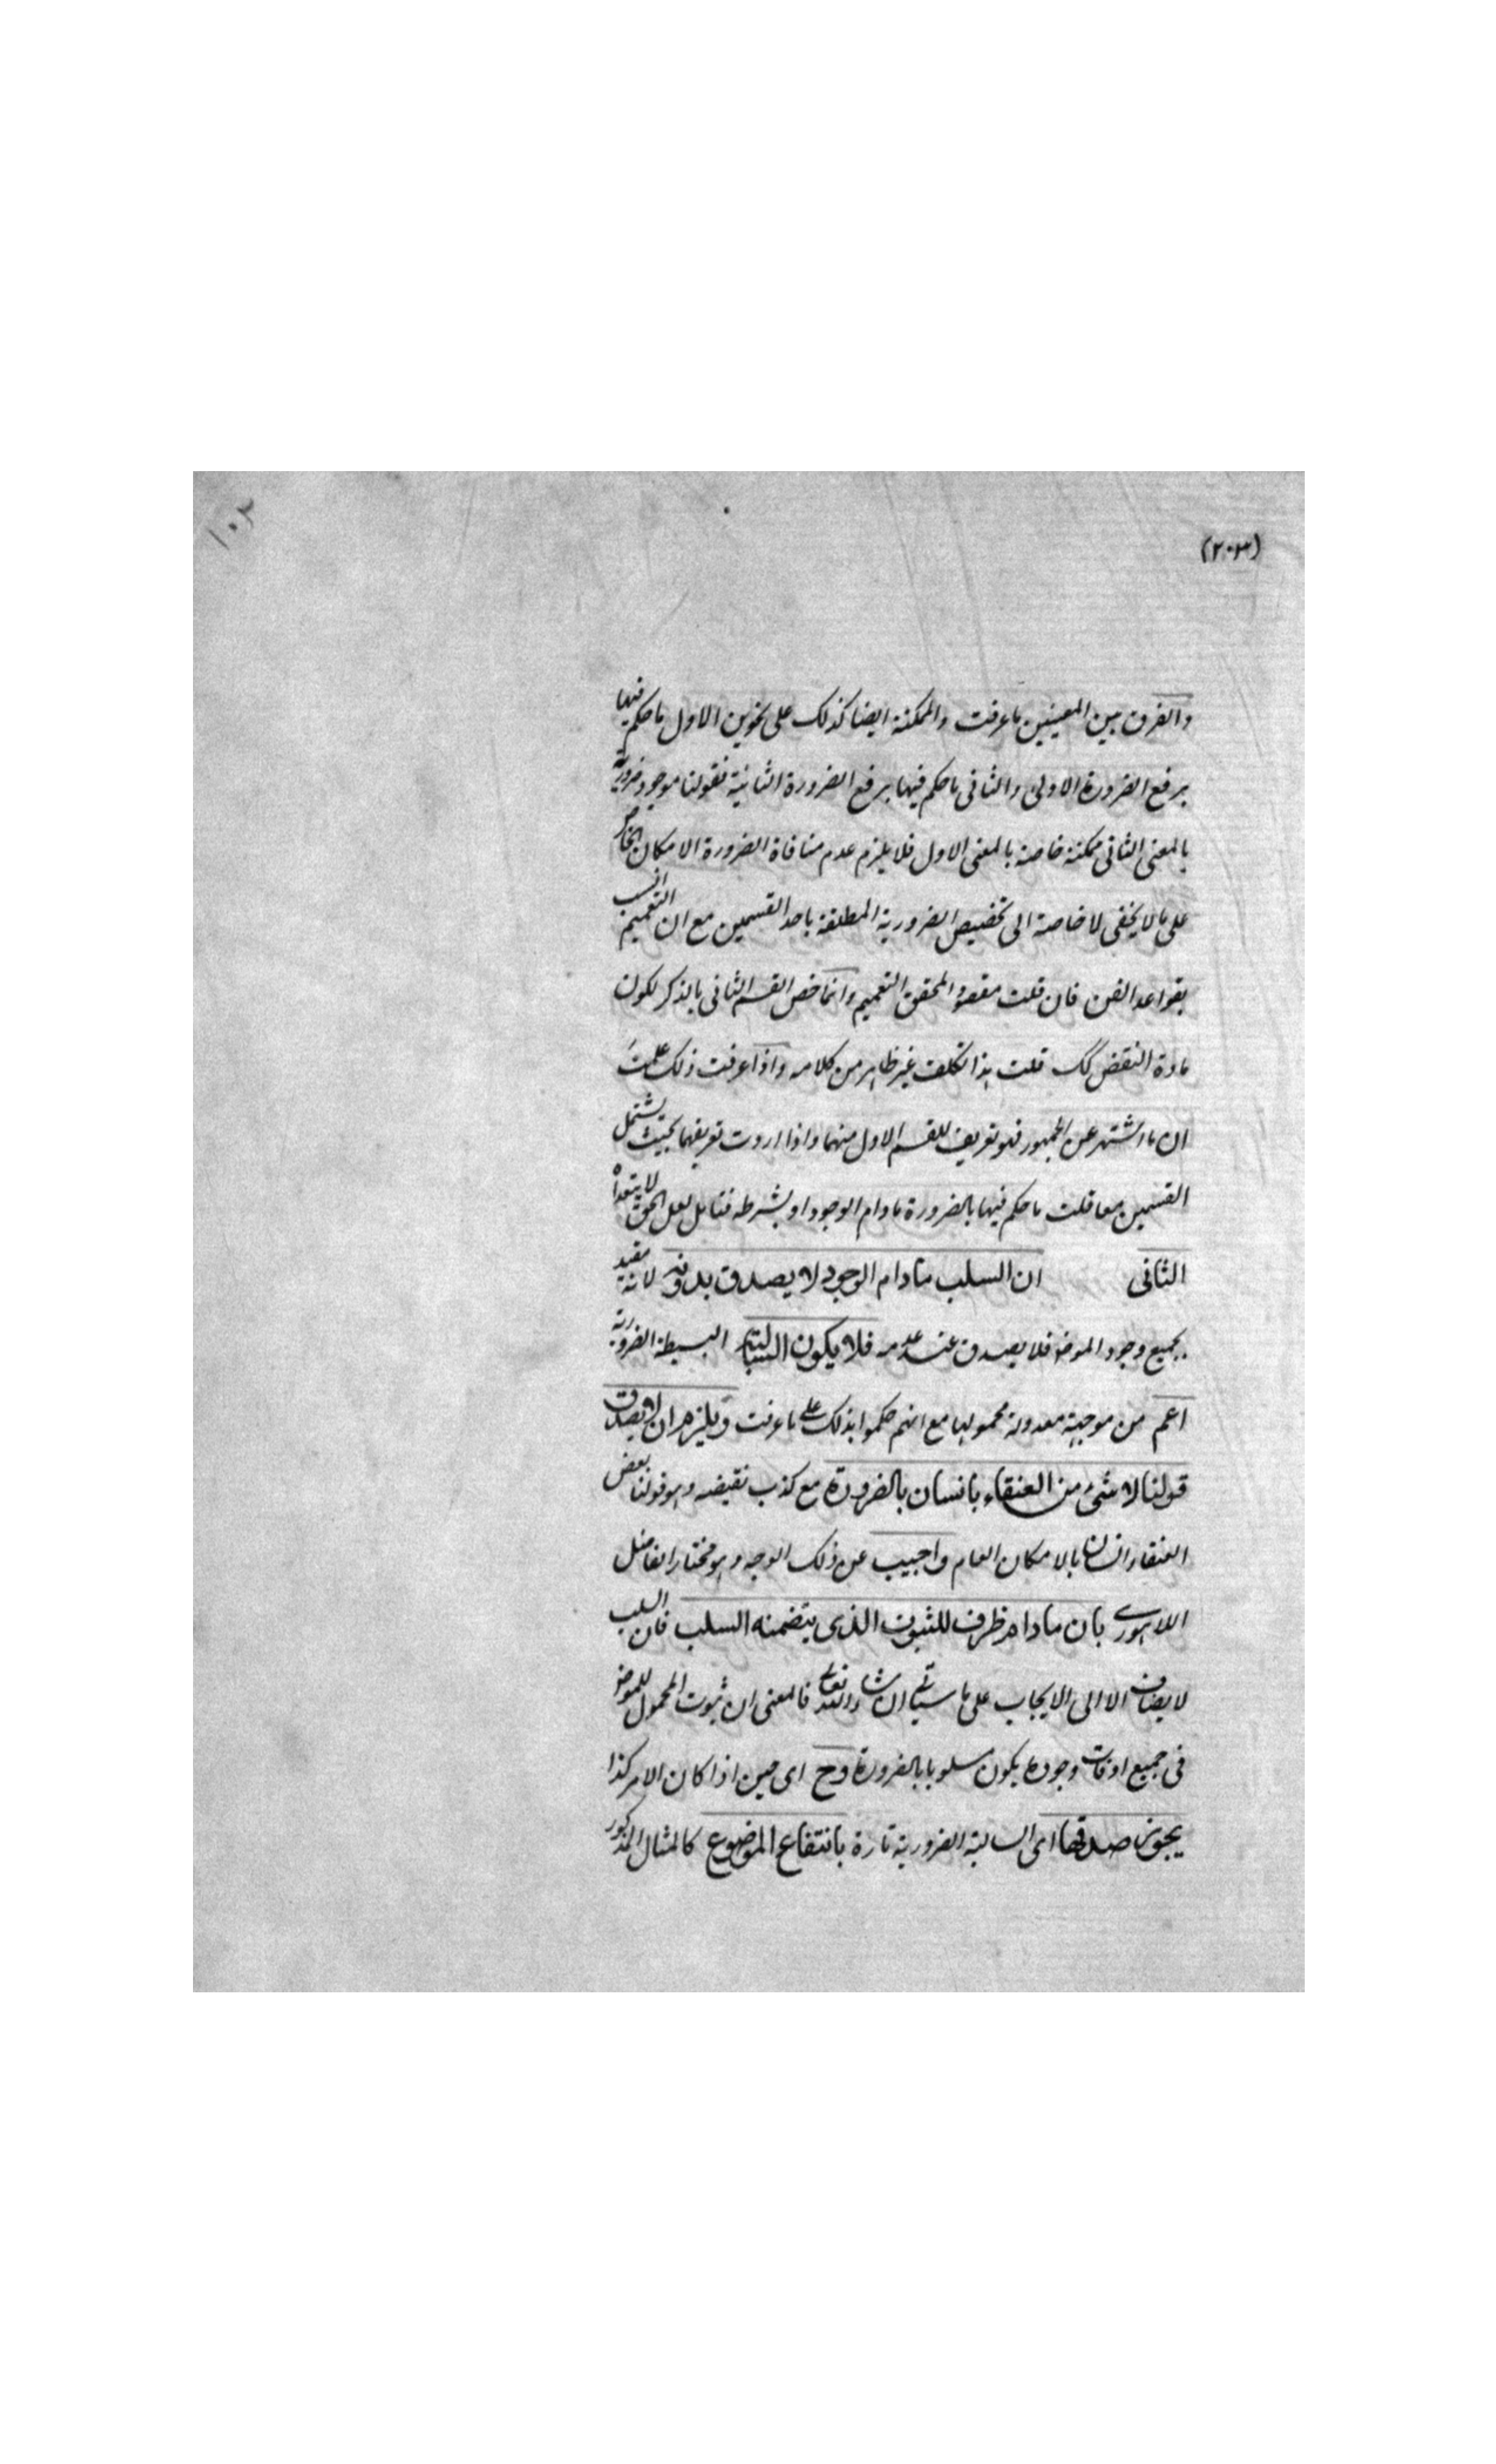 ١٠٢
(٢٠٣)
والفرق بين المعنيين ما عرفت والممكنة ايضا كذلك على نحوين الاول ما حكم فيها
برفع الضرورة الاولى والثانى ما حكم فيها برفع الضرورة الثانية فقولنا موجود ضرورية
بالمعنى الثانى ممكنة خاصة بالمعنى الاول فلا يلزم عدم منافاة الضرورة الامكان الخاص
على ما لا يخفى لا خاصة الى تخصيص الضرورية المطلقة باحد القسمين مع ان التعميم انسب
بقواعد الفن فان قلت مقصود المحقق التعميم وانما خص القسم الثانى بالذكر لكون
مادة النقض كك قلت هذا تكلف غير ظاهر من كلامه واذا عرفت ذلك علمت
ان ما اشتهر عن الجمهور فهو تعريف للقسم الاول منهما واذا اردت تعريفهما بحيث يشتمل
القسمين معا قلت ما حكم فيها بالضرورة ما دام الوجود او بشرطه فتامل لعل الحق لا يتعداه
الثانى ان السلب مادام الوجود لا يصدق بدونه لانه مقيد
بجميع وجود الموضو فلا يصدق عند عدمه فلا يكون السالبة البسيطة الضرورية
اعم من موجبة معدولة محمولها مع انهم حكموا بذلك على ما عرفت ويلزم ان لا يصدق
قولنا لا شئ من العنقاء بانسان بالضرورة مع كذب نقيضه وهو قولنا بعض
العنقاء انسان بالامكان العام واجيب عن ذلك الوجه وهو مختار الفاضل
اللاهورى بان مادام ظرف للثبوت الذى يتضمنه السلب فان السلب
لا يضاف الا الى الايجاب على ما سياتى ان شاء الله تعالى فالمعنى ان ثبوت المحمول للموضو
فى جميع اوقات وجوده يكون مسلوبا بالضرورة وح اى حين اذا كان الامر كذا
يجوز صدقها اى السالبة الضرورية تارة بانتفاع الموضوع كالمثال المذكور